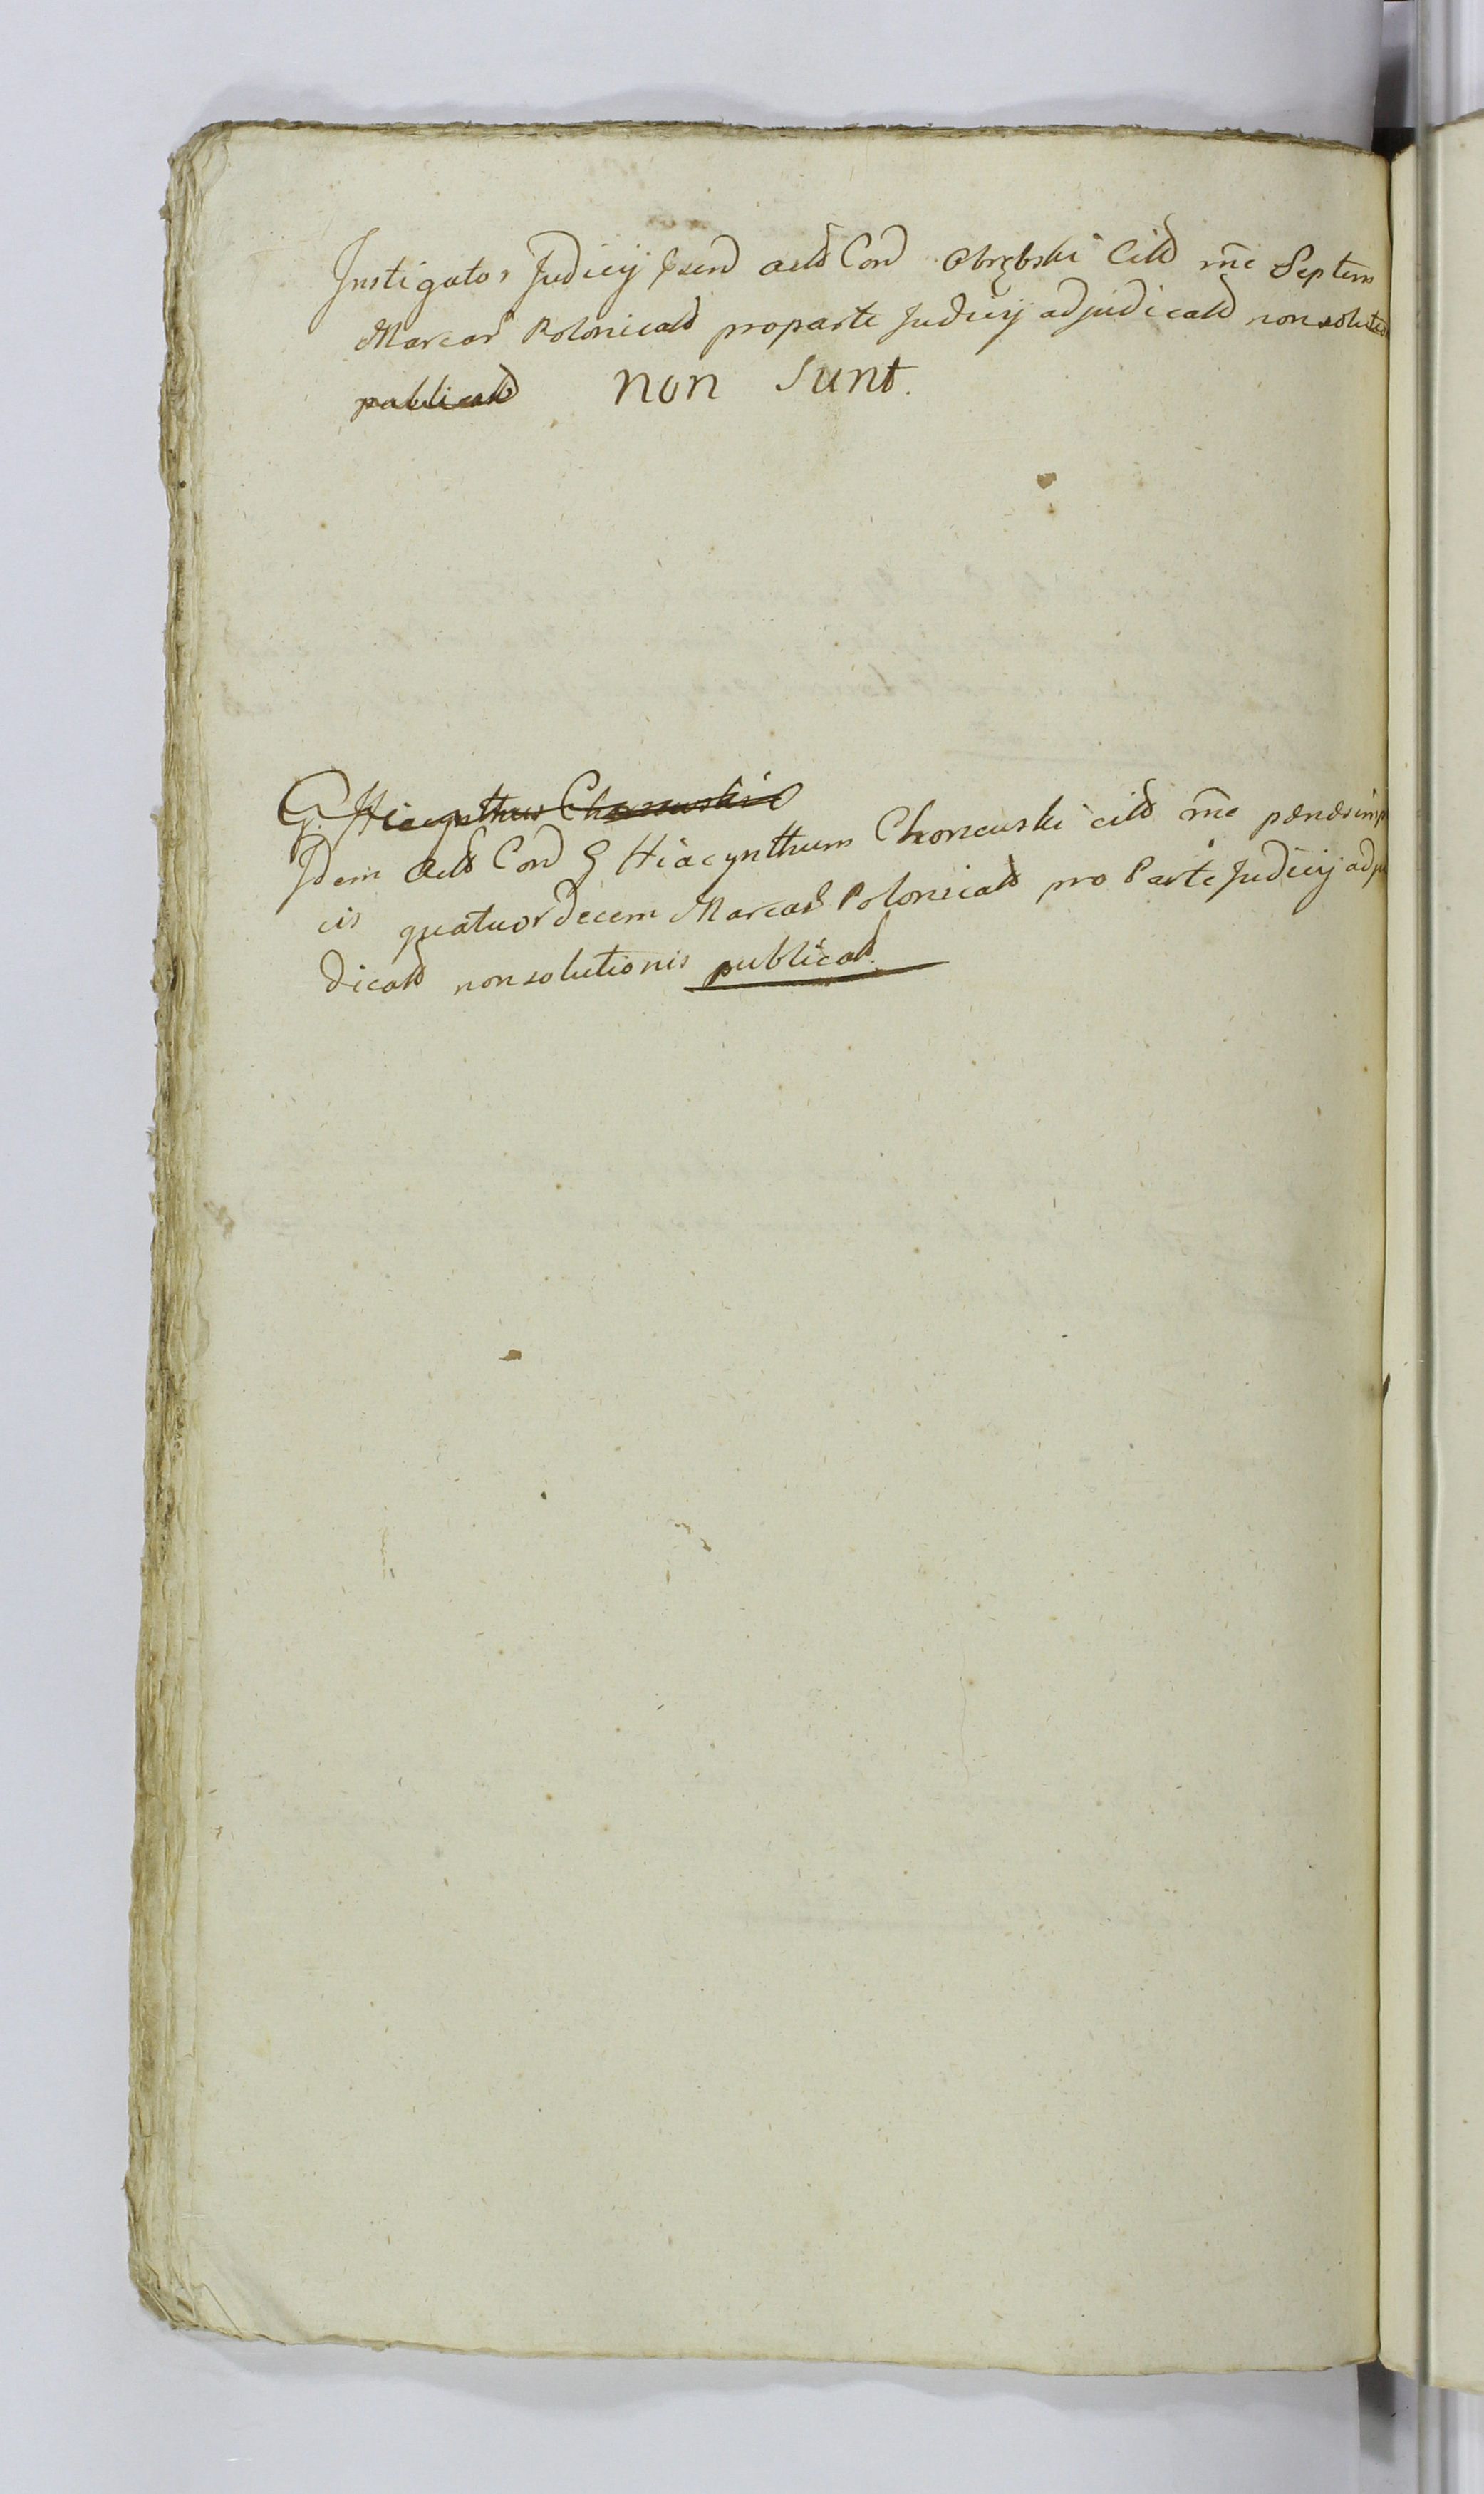 Instigator Judicij psend actd Cord Obrębski Citd rñe Septem
Marcar Polonicald pro parte Judicij adjudicatd non solutio
publicatd non sunt.
G. Hiacynthus Choreuski
Idem Actd Cord G Hiacynthum Choncuski citd rñe pœnæ
cis quatuordecem Marcar Polonicatd pro Parte Judicij adju
dicatd non solutionis publicatd.